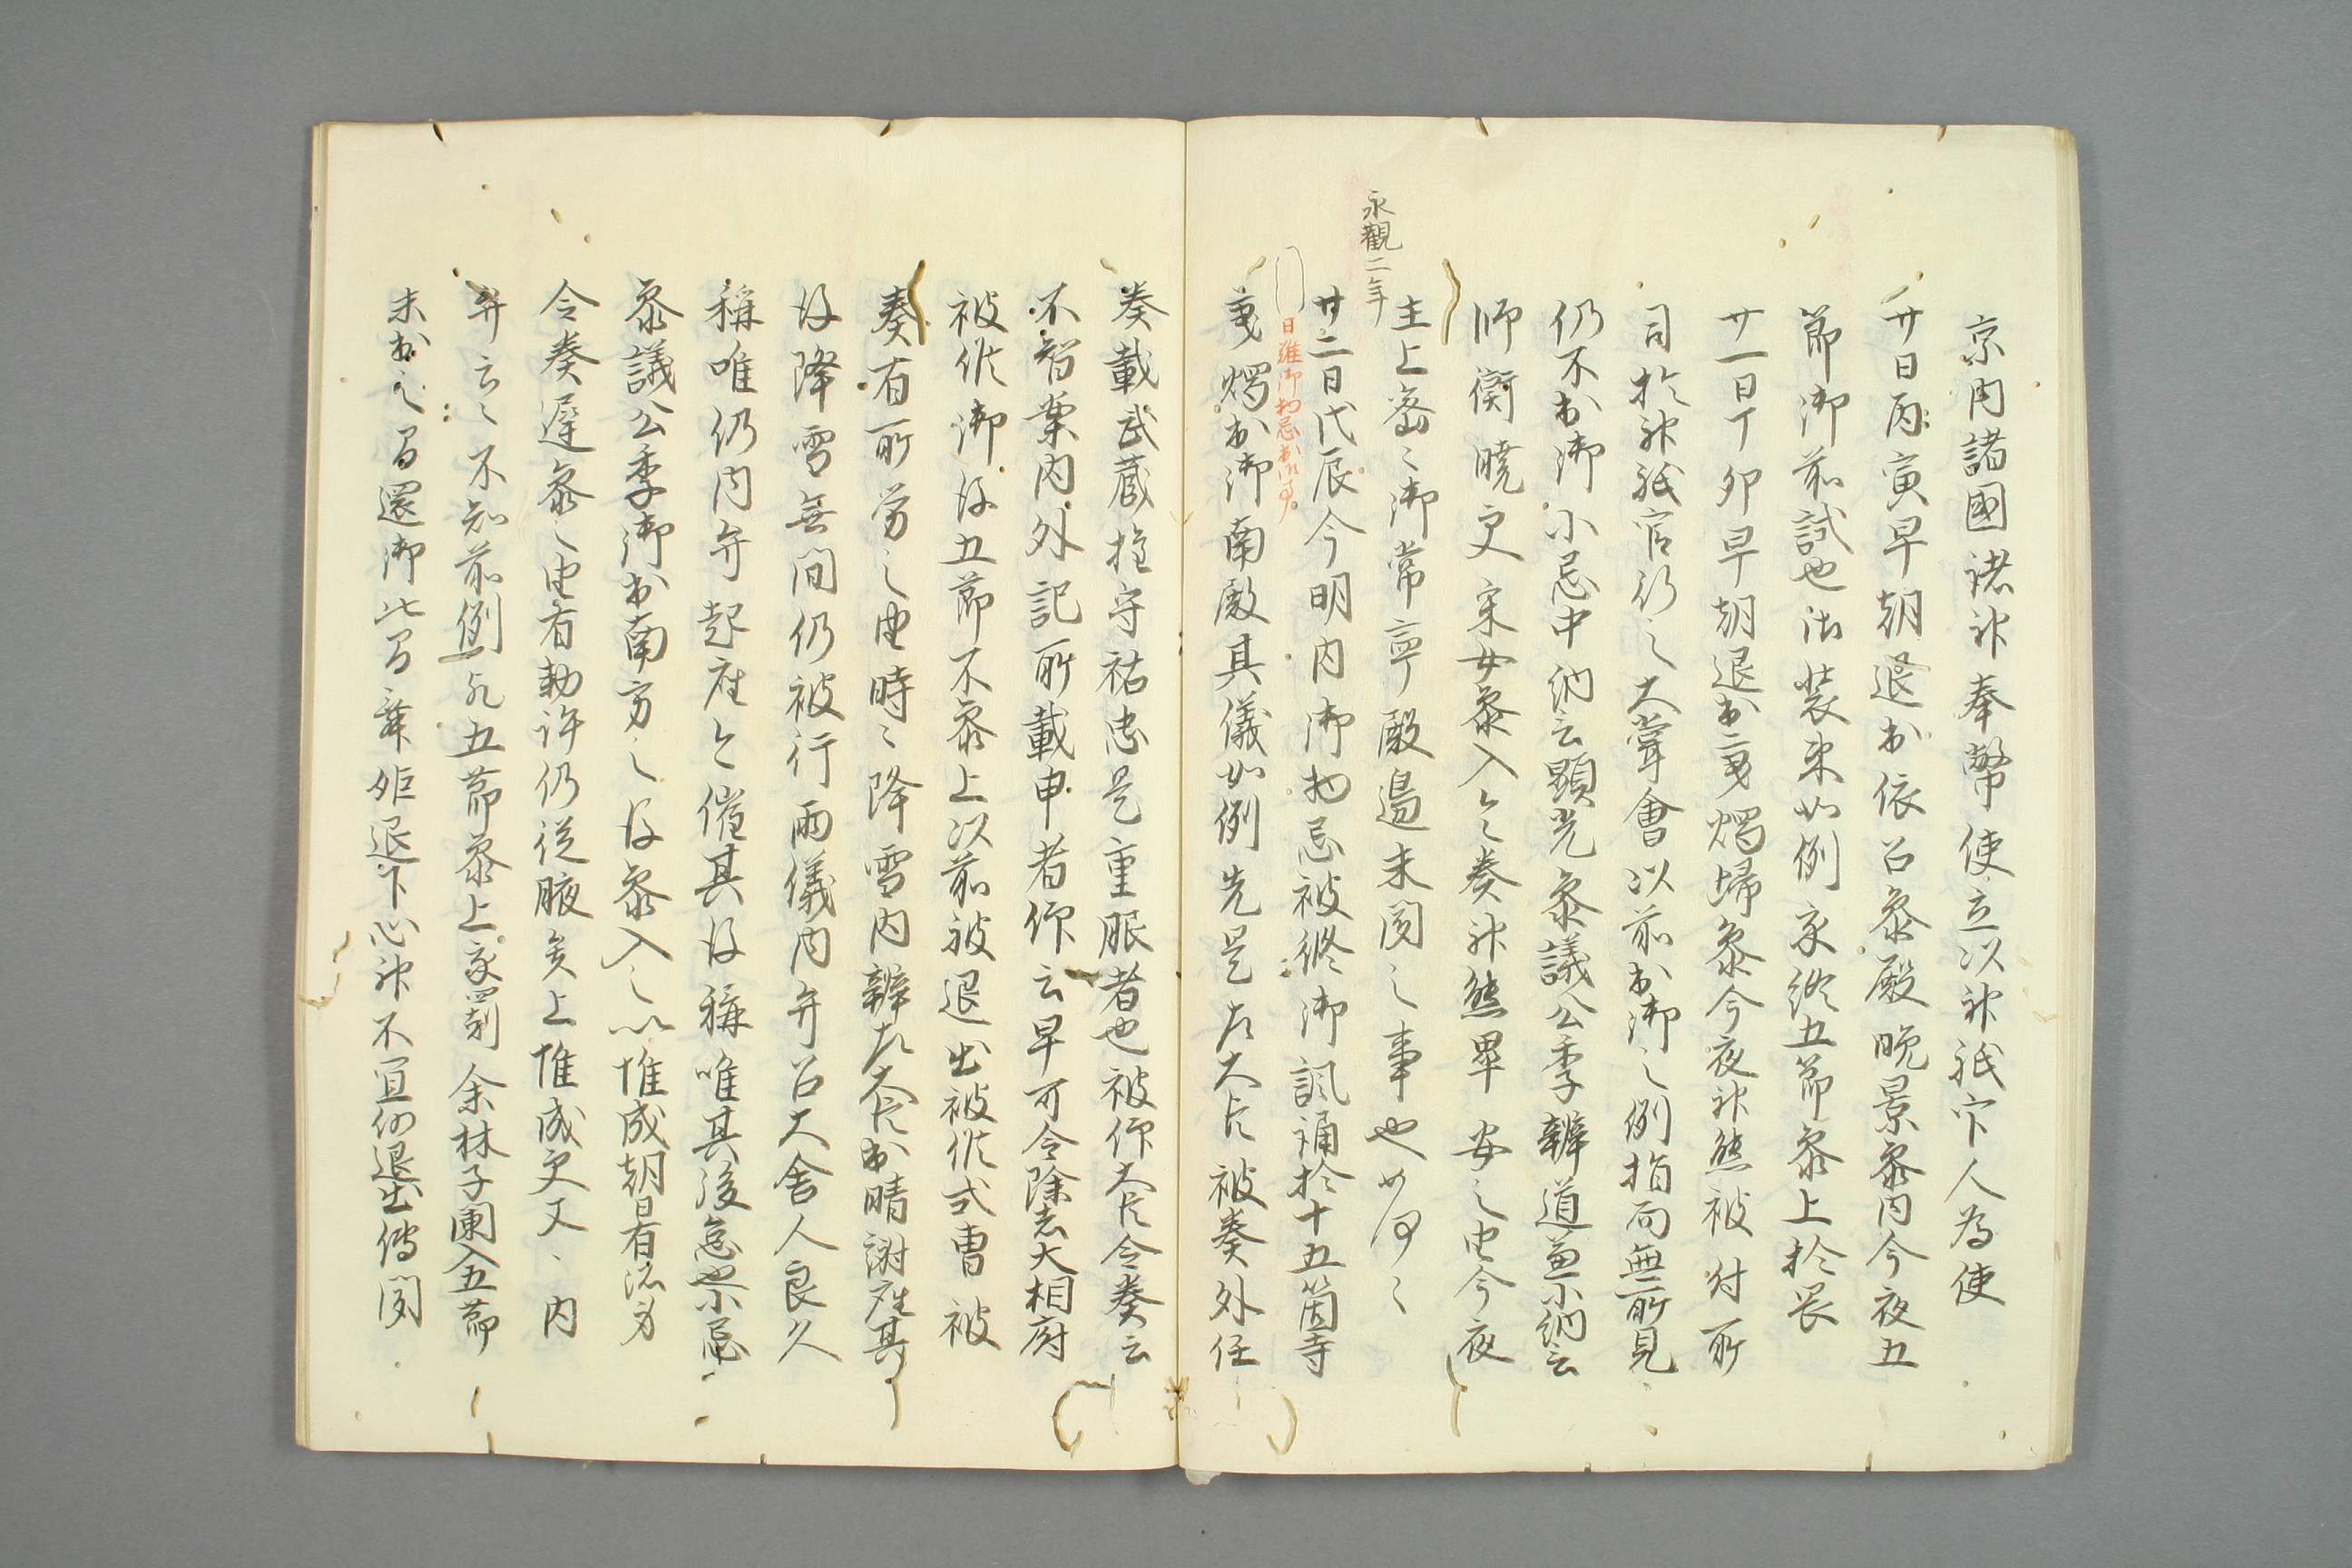 京内諸國諸神奉幣使立以神祇官人為使
廿日丙寅早朝退出依召参殿晩景参内今夜五
節御前試也御装束如例亥終五節参上於畏
廿一日丁卯早朝退出秉燭帰参今夜神態被付所
司於神祇官行之大嘗會以前出御之例指而無所見
仍不出御小忌中納言顕光参議公季辨道兼少納言
師衡暁更采女参入令奏神態畢安之由今夜
主上密々御常寧殿邉未聞之事也如何々
永觀二年
廿二日戊辰今明内御物忌被修御諷誦於十五箇寺
日雖御物忌出御事
秉燭出御南殿其儀如例先是左大臣被奏外任
奏載武蔵権守祐忠是重服者也被仰大臣令奏云
不知案内外記所載申者仰云早可令除者大相府
被候御後五節不参上以前被退出被候式曹被
奏有所労之由時々降雪内辨左大臣出晴謝座其
後降雪無間仍被行雨儀内弁召大舎人良久
稱唯仍内弁起座令催其後稱唯其後忽也小忌
参議公季御出南方之後参入之以惟成朝臣有
令奏遅参之由有勅許仍従腋参上惟成更又、内
弁云々不知前例凡五節参上亥剋余林子闌入五節
未出之間還御此間舞姫退下心神不宜仍退出傳聞